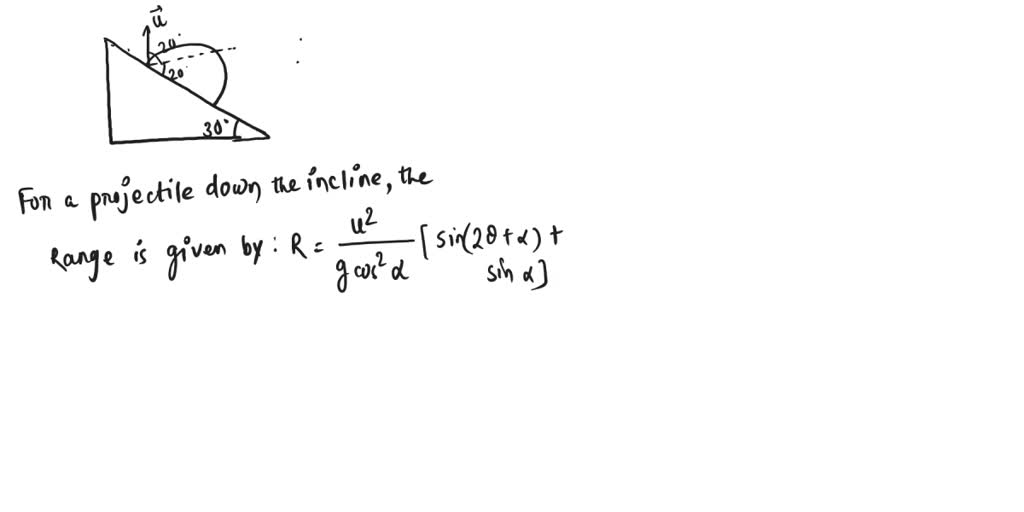 u⃗
20°
20°
30°
For a projectile down the incline, the
Range is given by: R = u²/(g cos² α) [sin(2θ+α) +
sin α]